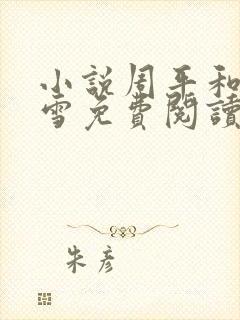 小説周平和
雪免費閱讀
朱彥